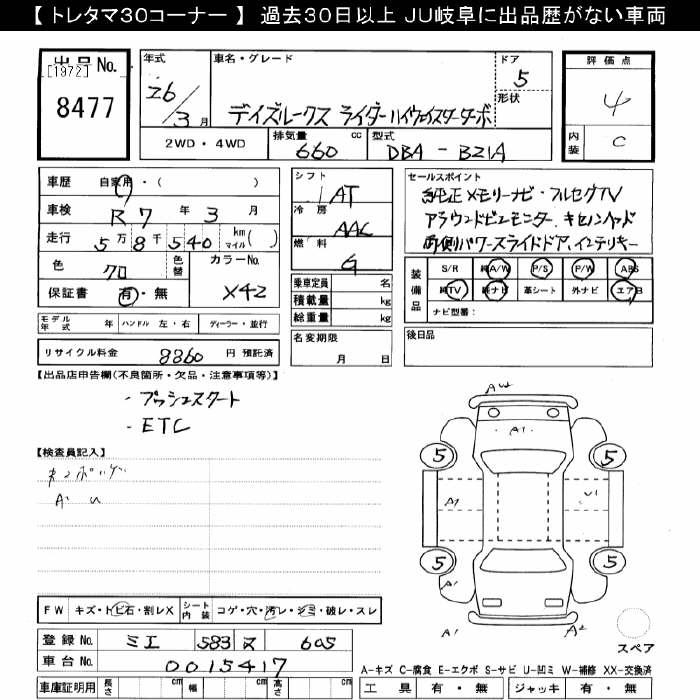 【 トレタマ30コーナー 】 過去30日以上 JU岐阜に出品歴がない車両
出品No.
[1972]
8477
年式
26/3月
車名・グレード
デイズルークス ライダーハイウェイスターターボ
ドア
5
形状
2WD・4WD
排気量 660 cc
型式 DBA - B21A
評価点
4
内装 C
車歴 自家用・( )
車検 R7 年 3 月
走行 5万 8千 540 km マイル( )
色 クロ 色替 カラーNo. X42
保証書 有・無
モデル年式 年 ハンドル 左・右 ディーラー・並行
リサイクル料金 8860 円 預託済
シフト
IAT
冷房
AAC
燃料
G
乗車定員 名
積載量 kg
総重量 kg
名変期限
月 日
セールスポイント
純正メモリーナビ・フルセグTV
アラウンドビューモニター、キセノンヘッド
両側パワースライドドア、インテリキー
装備品
S/R 純A/W P/S P/W ABS
純TV 純ナビ 革シート 外ナビ エアB
ナビ型番:
後日品
【出品店申告欄(不良箇所・欠品・注意事項等)】
・プッシュスタート
・ETC
【検査員記入】
A・U
FW キズ・トビ石・割レX シート内装 コゲ・穴・汚レ・シミ・破レ・スレ
登録No. ミエ 583 ヌ 605
車台No. 0015417
車庫証明用 長さ cm 幅 cm 高さ cm
AW
・A1・
5
5
A1
U1
5
5
A1
A1
A2
スペア
A-キズ C-腐食 E-エクボ S-サビ U-凹ミ W-補修 XX-交換済
工具 有・無 ジャッキ 有・無